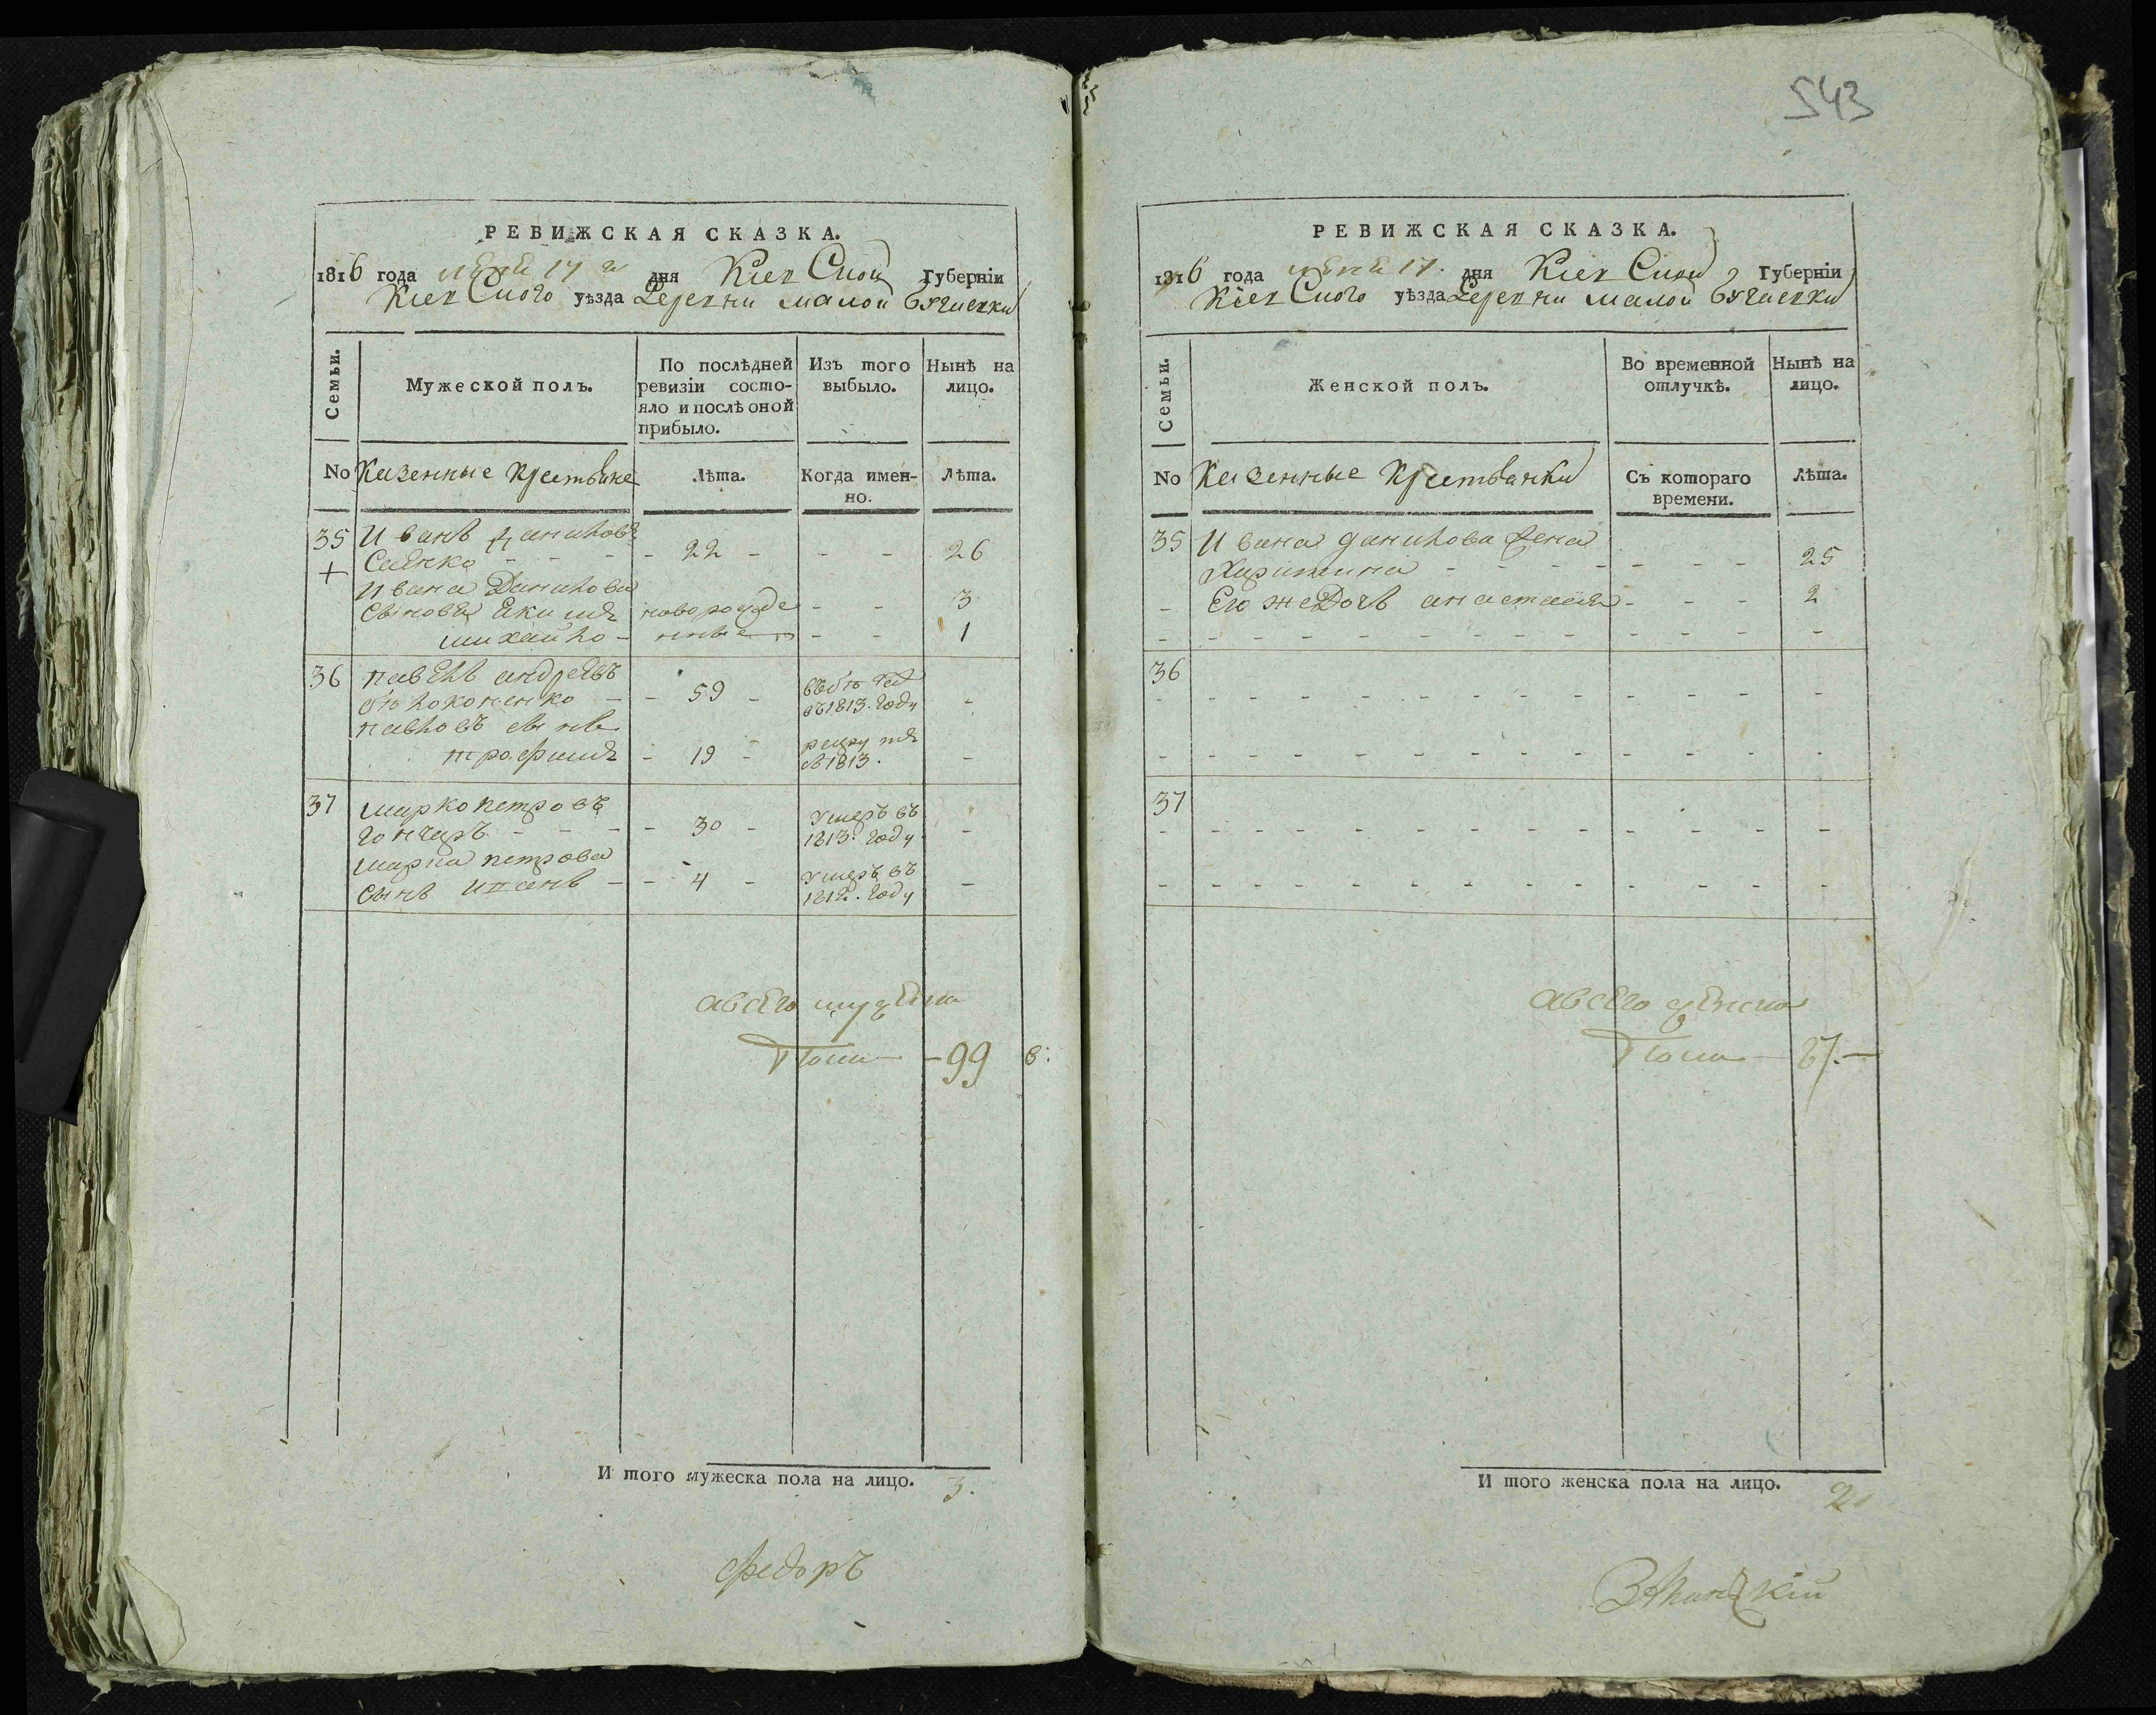 543
РЕВИЖСКАЯ СКАЗКА.
1816 года 17 дня Кіевской Губерніи
Кіевского уѣзда Деревни малой Бугаевки
Семьи.
Мужеской полъ.
По послѣдней ревизіи состояло и послѣ оной прибыло.
Изъ того выбыло.
Нынѣ на лицо.
No Казенные крестьяне
Лѣта.
Когда именно.
Лѣта.
35 Иванъ Даниловъ
- 22 - - - 26
Ивана Данилова
сыновья Екимъ новорожде - - 3
михайло - нные - - 1
36 павелъ андреевъ
- 59 - въ 1813. году -
павловъ сынъ
трофимъ - 19 - в 1813. -
37 марко петровъ
гончаръ - - - - 30 - умеръ въ 1813. году -
марка петрова
сынъ иванъ - - 4 - умеръ въ 1812. году -
авсего мужеска
Пола - 99
И того мужеска пола на лицо. 3.
федоръ
РЕВИЖСКАЯ СКАЗКА.
1816 года 17. дня Кіевской Губерніи
Кіевского уѣзда Деревни малой Бугаевки
Семьи.
Женской полъ.
Во временной отлучкѣ.
Нынѣ на лицо.
No Казенные крестьянки
Съ котораго времени.
Лѣта.
35 Ивана данилова жена
Харитина - - - - - - - 25
Его же дочь анастасия - - - 2
36
37
авсего женска
Пола - 87. -
И того женска пола на лицо. 2